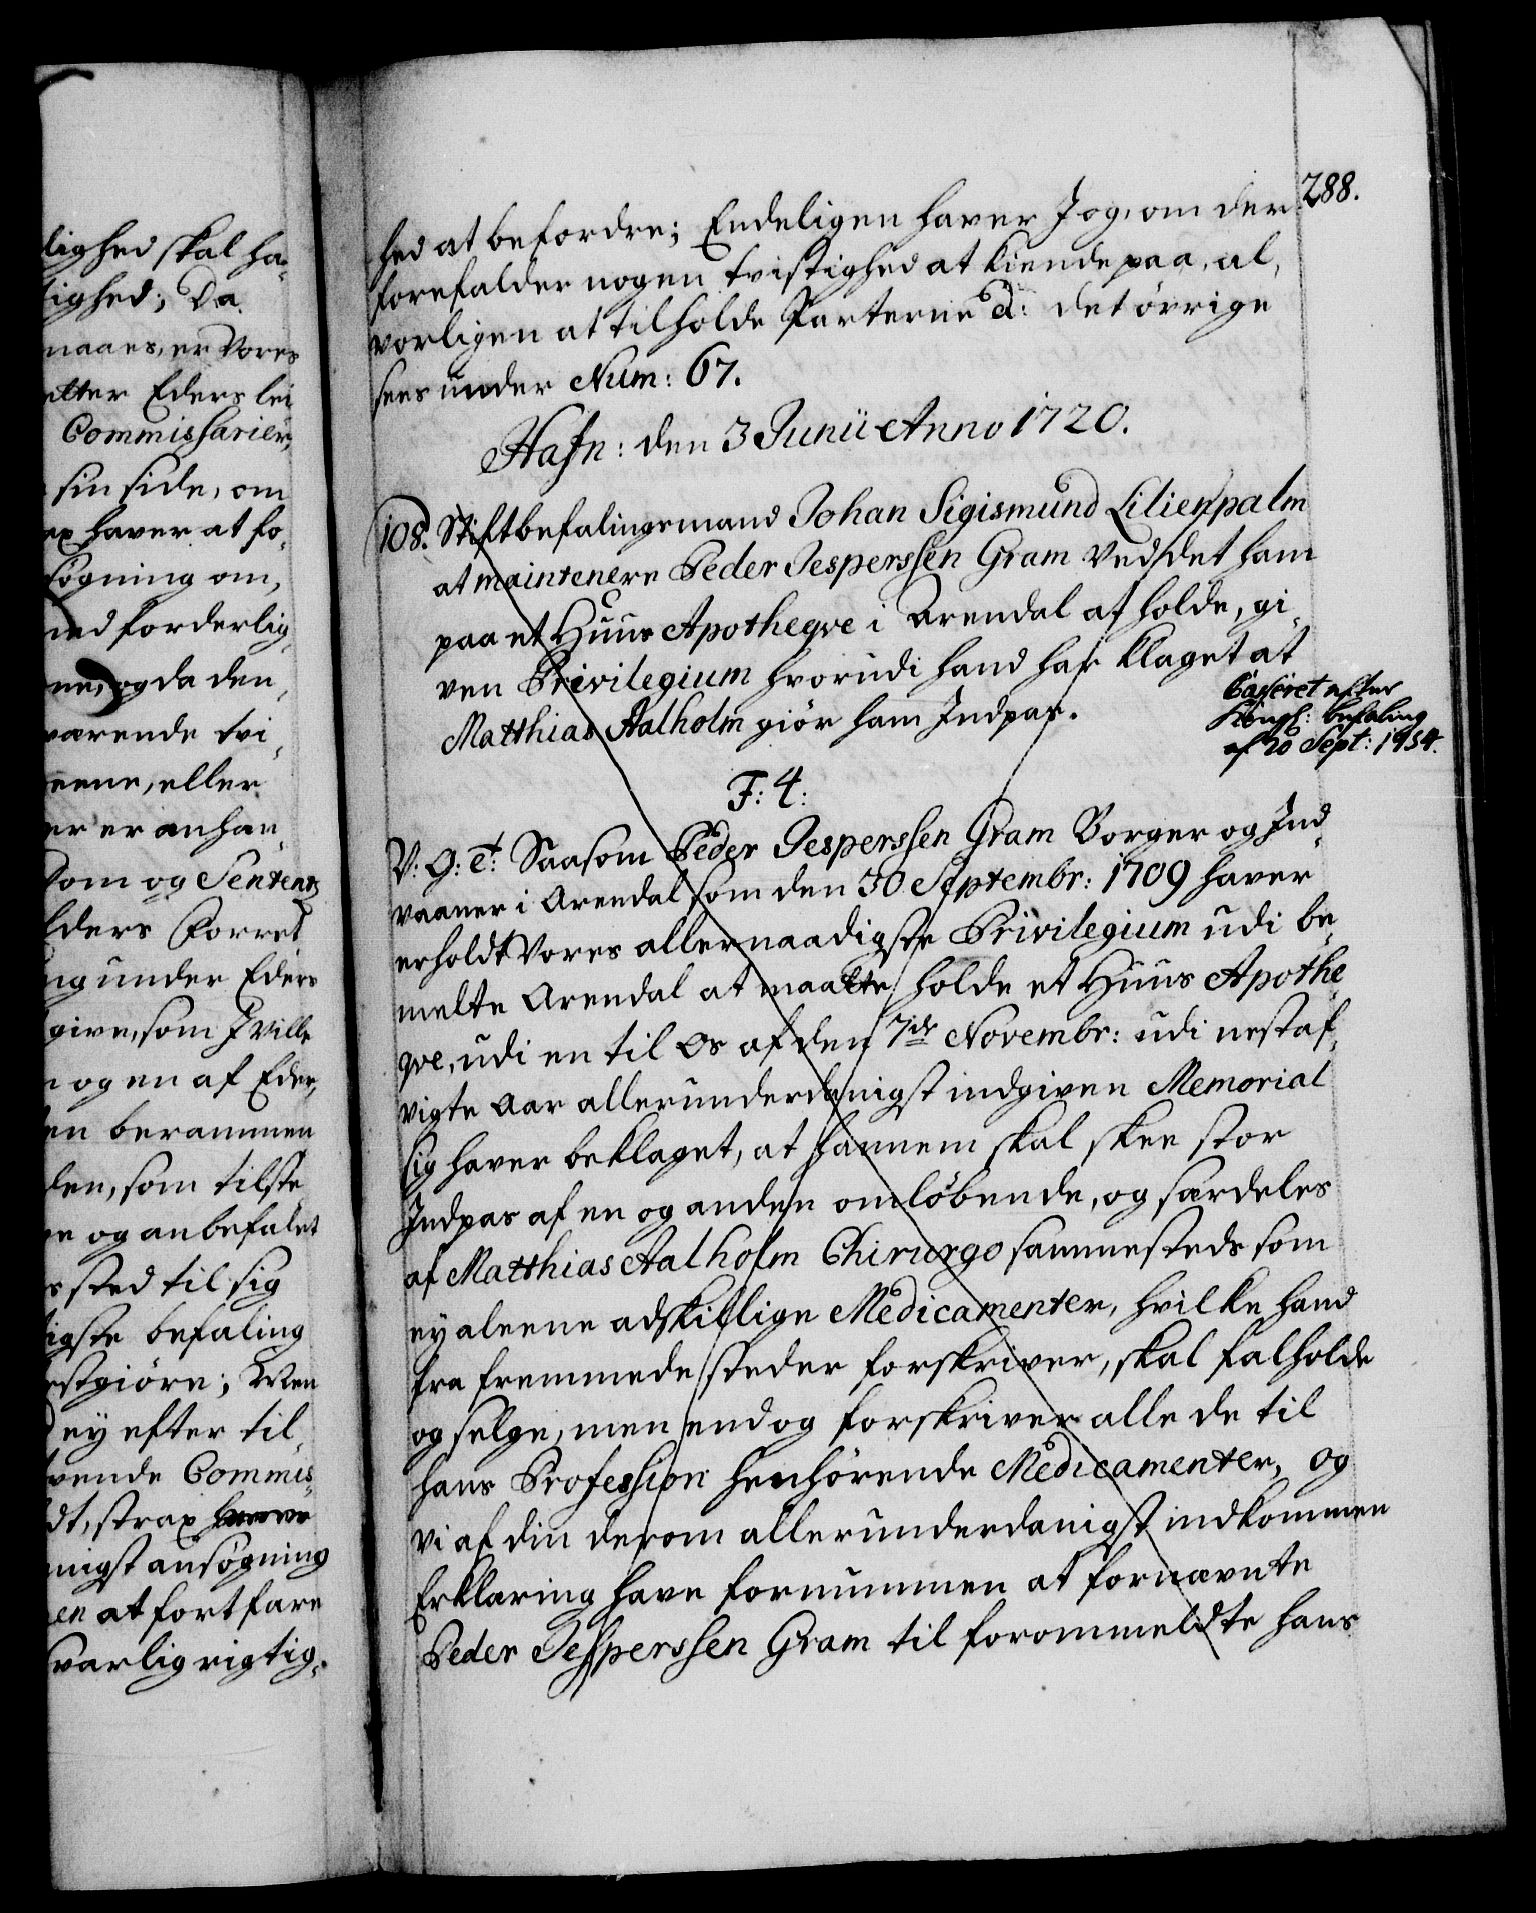 lighed skal ha-
tighed; Da
maanes, er Vores
etter Eders lei
Commissarier,
sin side, om
ax haver at fo-
søgning om,
med forderlig
ne, og da den
værende tvi-
eene, eller
er er anhæn-
Dom og Sententz
Eders Forret
ng under Eders
give, som I ville
og en af Eder,
en berammen
den, som tilste
og anbefalet
sted til sig
igste befaling
estgiøre; Men
ey efter til-
vende Commis-
dt, strax
nigst ansøgning
en at fortfare
svarlig rigtig-
288.
hed at befordre; Endeligen haver I og, om der
forefalder nogen tvistighed at kiende paa, al-
vorligen at tilholde Parterne &: det øvrige
sees under Num: 67.
Hafn: den 3 Junii Anno 1720.
108. Stiftbefalingsmand Johan Sigismund Lilienpalm
at maintenere Peder Jesperssen Gram ved det ham
paa et Huus Apotheqve i Arendal at holde, gi-
ven Privilegium hvorudi hand har klaget at
Matthias Aalholm giør ham Indpas.
Casseret efter
Kongl: befaling
af 20 Sept: 1754.
F: 4:
V: G: T: Saasom Peder Jesperssen Gram Borger og Ind-
vaaner i Arendal som den 30 Septembr: 1709 haver
erholdt Vores allernaadigste Privilegium udi be-
melte Arendal at maatte holde et Huus Apothe-
qve, udi en til Os af den 7de Novembr: udi nestaf-
vigte Aar allerunderdanigst indgiven Memorial
sig haver beklaget, at hannem skal skee stor
Indpas af en og anden omløbende, og særdeles
af Matthias Aalholm Chirurgo sammesteds som
ey aleene adskillige Medicamenter, hvilke hand
fra fremmede steder forskriver, skal falholde
og selge, men end og forskriver alle de til
hans Profession henhørende Medicamenter, og
vi af din derom allerunderdanigst indkommen
Erklæring have fornummen at fornævnte
Peder Jesperssen Gram til forommeldte hans